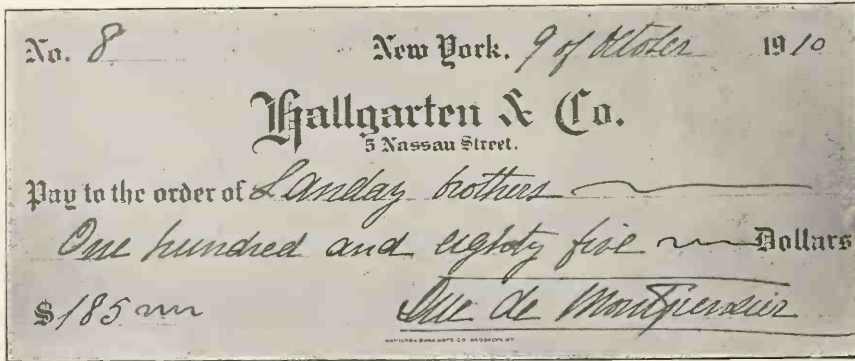 No. 8 New York, 9 of Oktober 1910
Hallgarten & Co.
5 Nassau Street.
Pay to the order of Landay brothers
One hundred and eighty five Dollars
$185 Duc de Montpensier
HAMILTON BANK NOTE CO. BROOKLYN NY